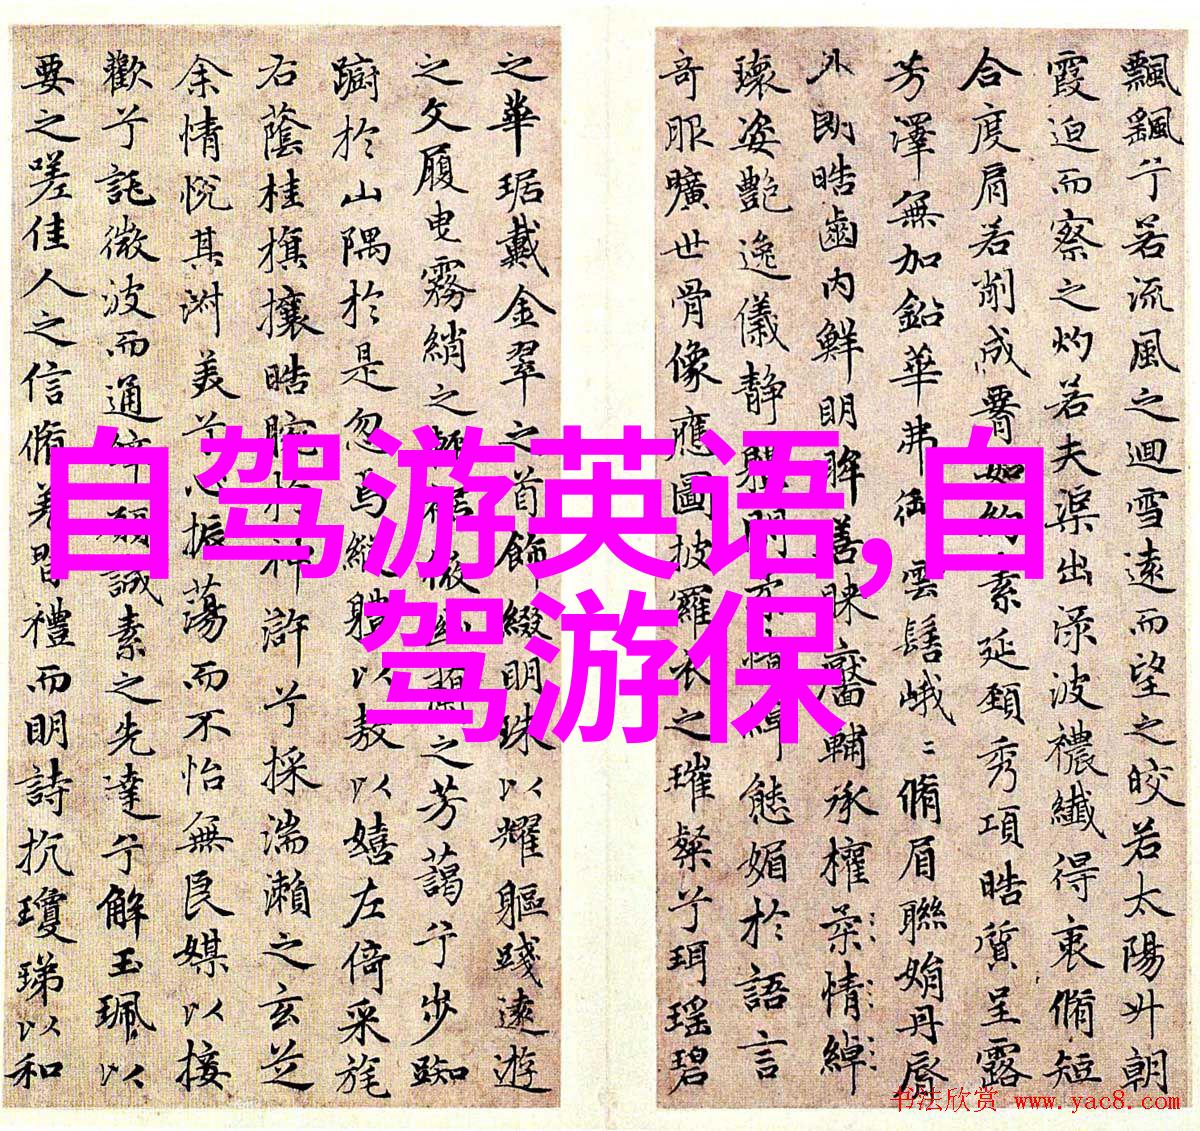 飄飖兮若流風之迴雪遠而望之皎若太陽升朝
霞迫而察之灼若夫渠出淥波襛纖得衷脩短
合度肩若削成腰如約素延頸秀項皓質呈露
芳澤無加鉛華弗御雲髻峨〻脩眉聯娟丹脣
外朗皓齒内鮮明眸善睞靨輔承權柔情綽
瓌姿艷逸儀静體閑柔情綽態媚於語言
奇服曠世骨像應圖披羅衣之璀粲兮珥瑶碧
之華琚戴金翠之首飾綴明珠以耀軀踐遠遊
之文履曳霧綃之輕裾微幽蘭之芳藹兮步踟
躕於山隅於是忽焉縱體以敖以嬉左倚采旄
右蔭桂旗攘皓腕於神滸兮採湍瀨之玄芝
余情悦其淑美兮心振蕩而不怡無良媒以接
歡兮託微波而通辭願誠素之先達兮解玉珮以
要之嗟佳人之信脩羌習禮而明詩抗瓊珶以和
自驾游英语,自
驾游保
书法欣赏 www.yac8.com